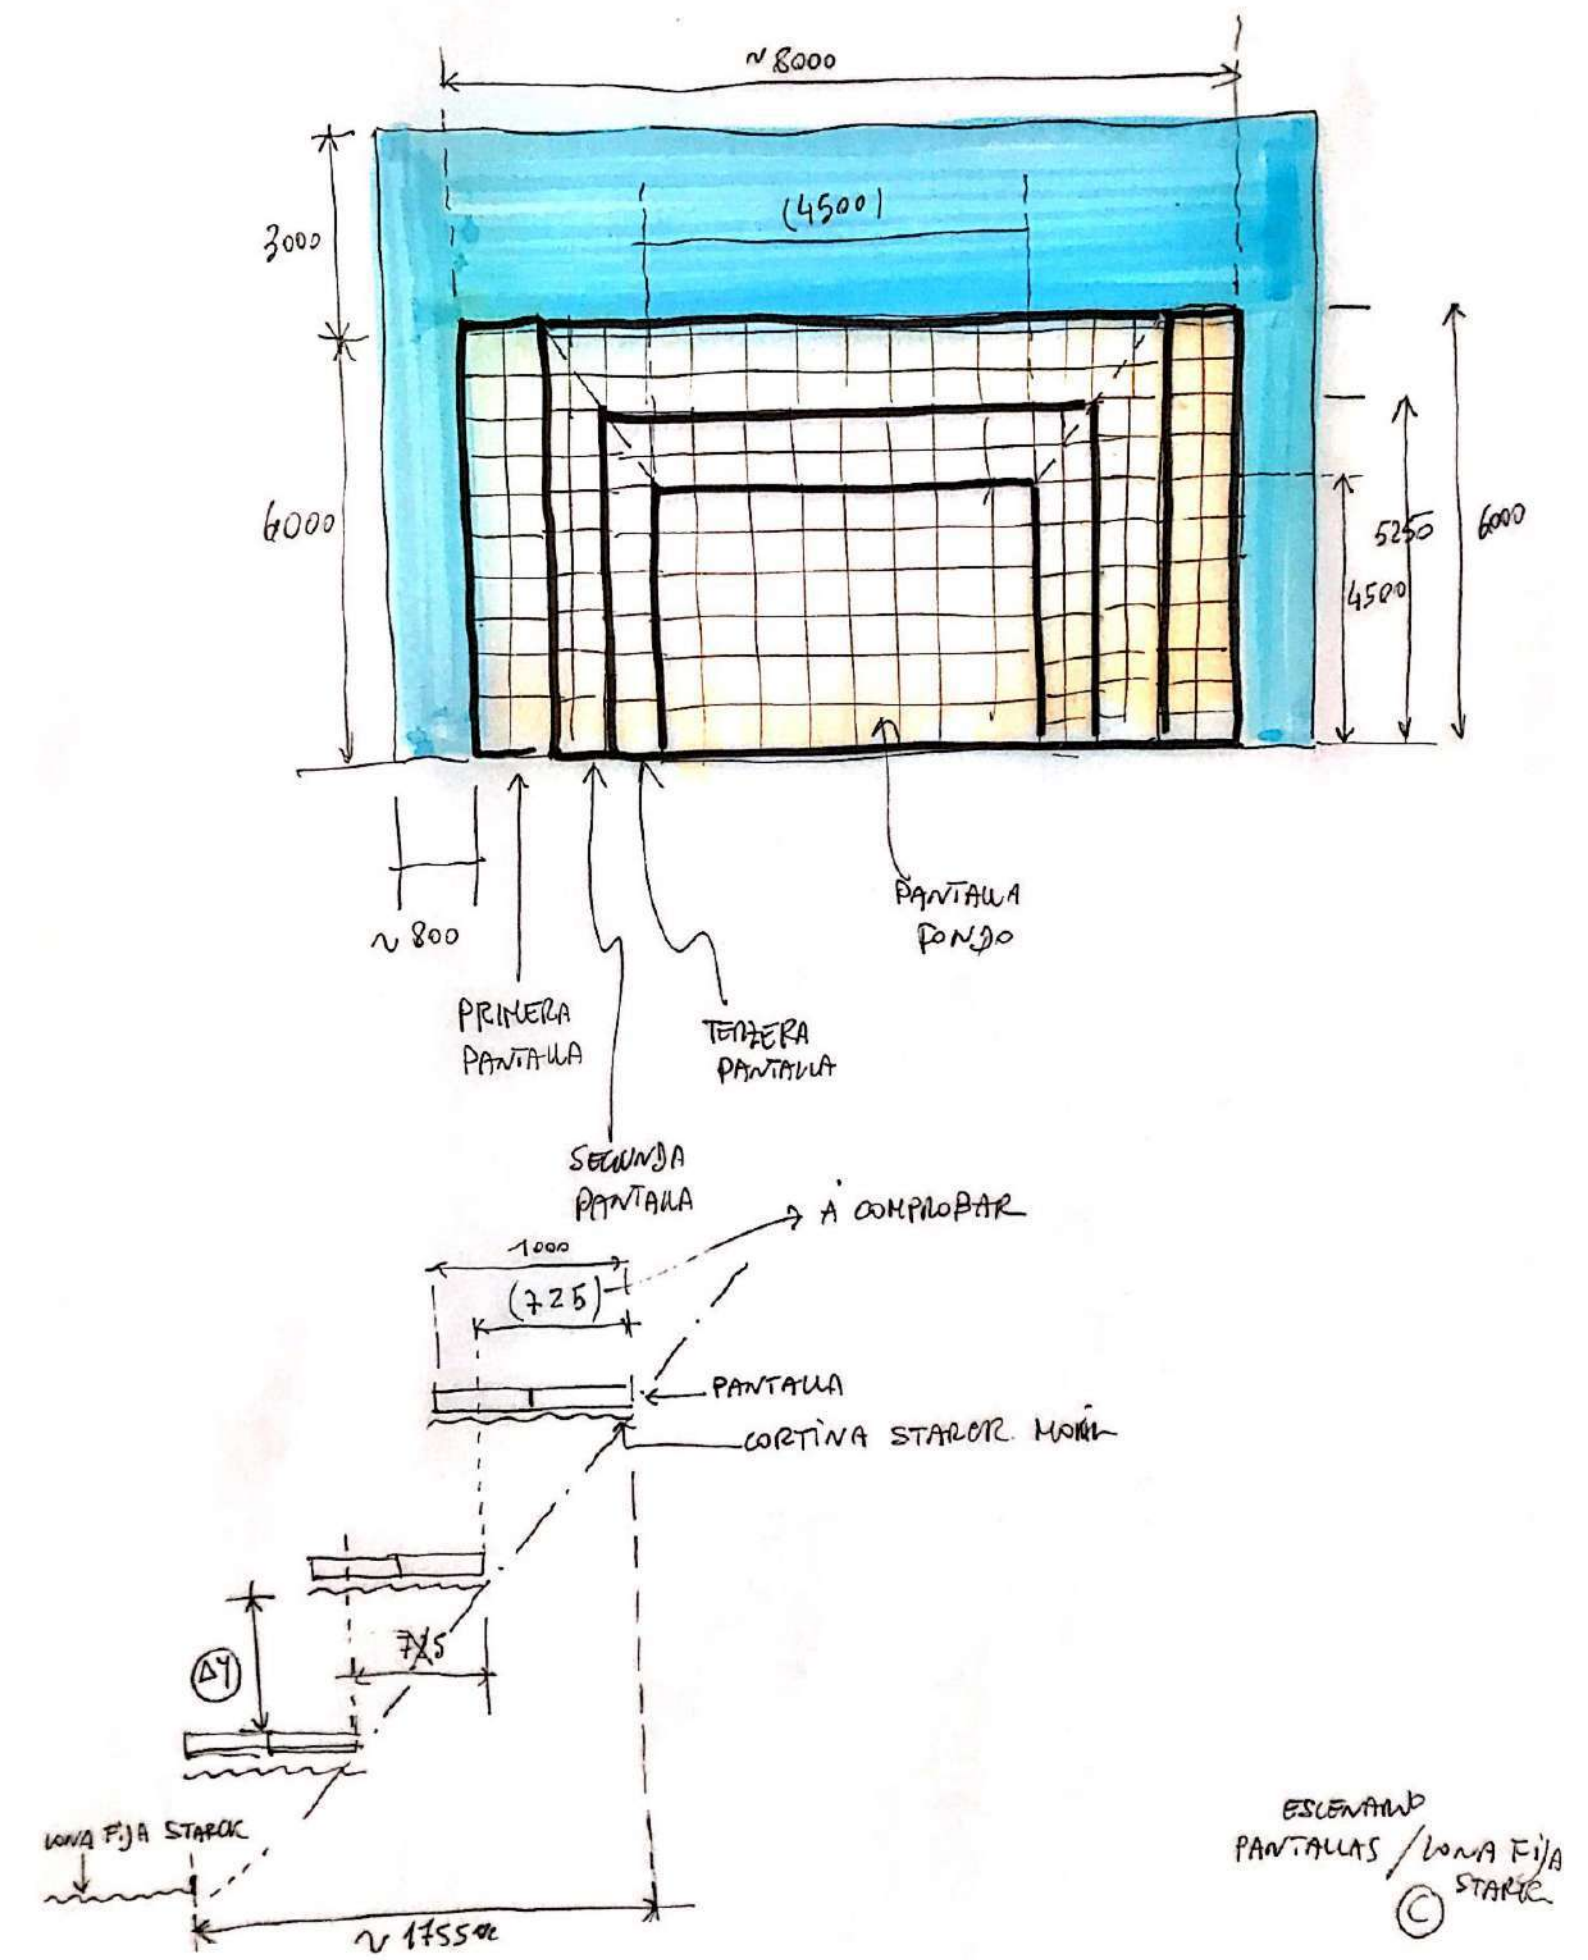 ~ 8000
(4500)
3000
6000
5250
6000
4500
~ 800
PANTALLA
FONDO
PRIMERA
PANTALLA
TERZERA
PANTALLA
SEGUNDA
PANTALLA
A COMPROBAR
1000
(725)
PANTALLA
CORTINA STARCK MOVIL
ΔY
LONA FIJA STARCK
~ 1755
ESCENARIO
PANTALLAS / LONA FIJA
STARCK
©